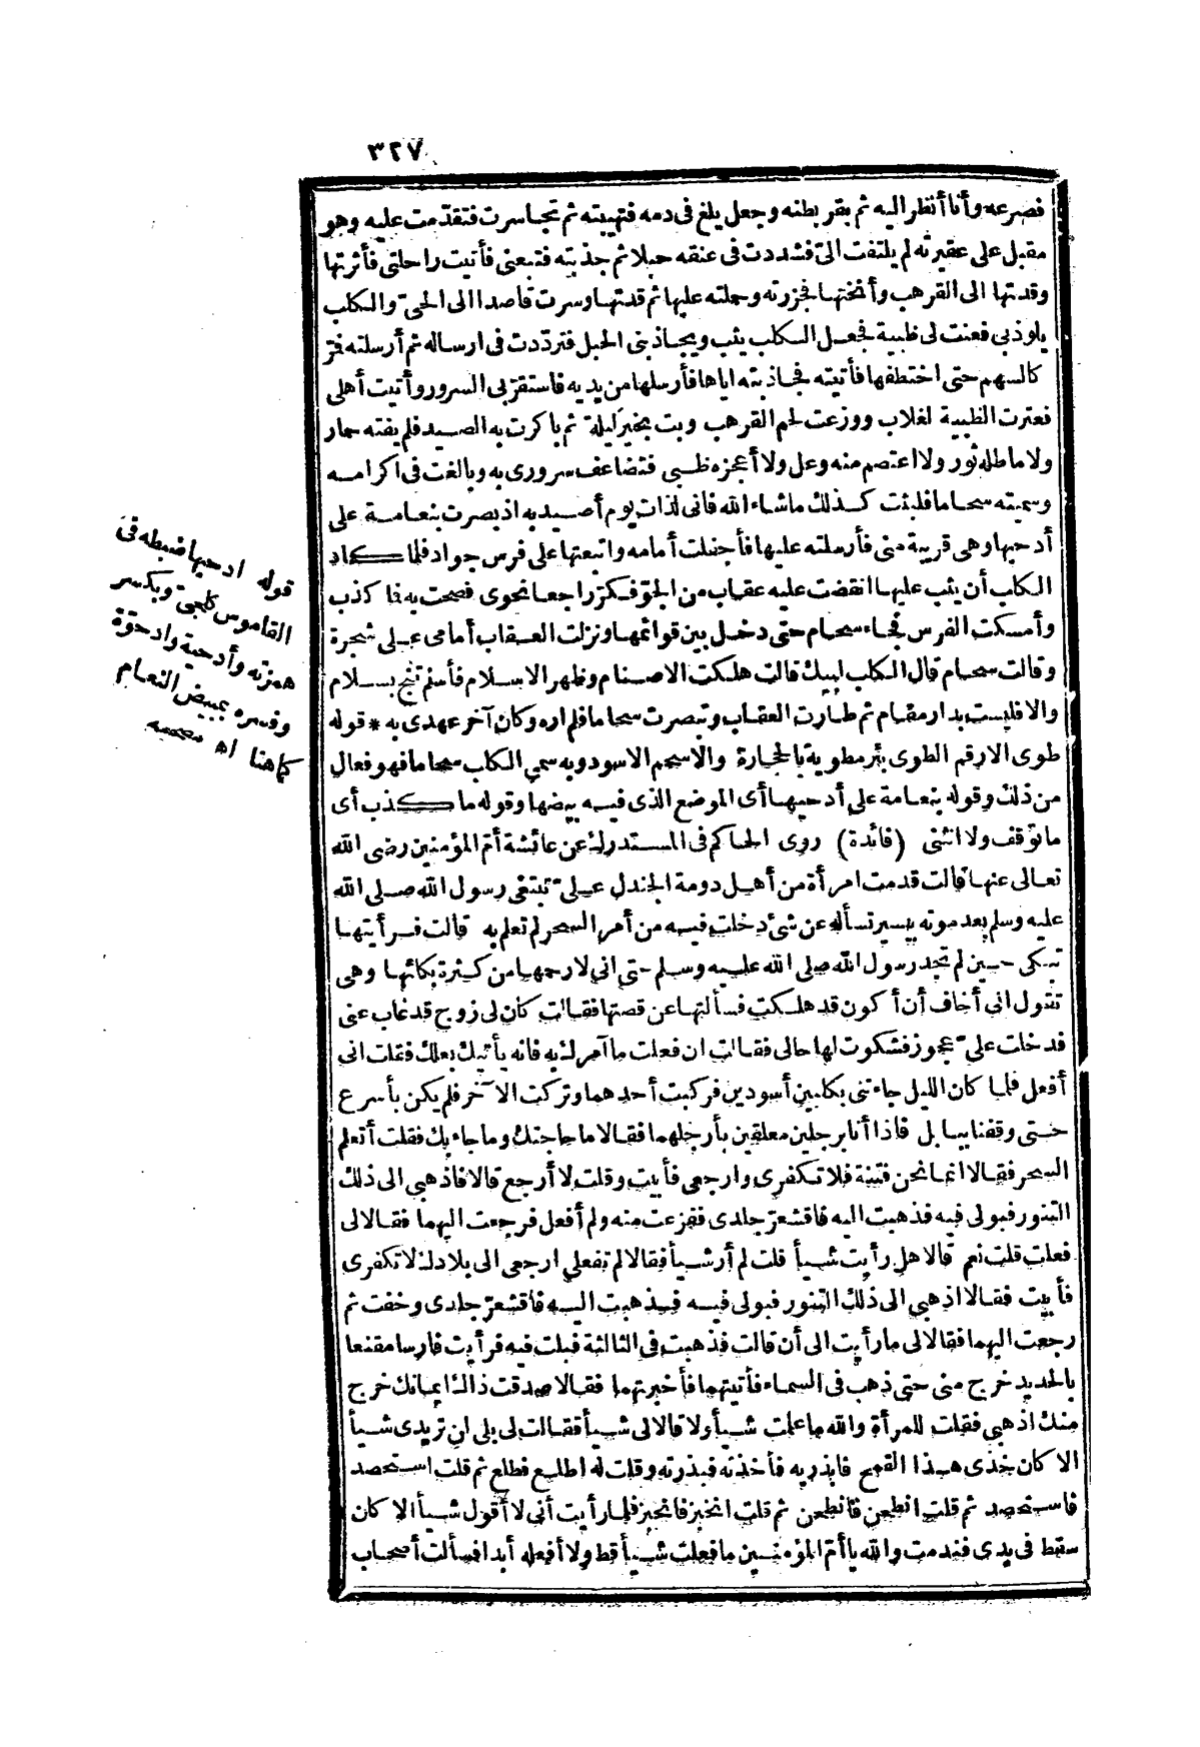 ٣٢٧
فصرعه وأنا أنظر اليه ثم بقر بطنه وجعل يلغ فى دمه فتهيبته ثم تجاسرت فتقدّمت عليه وهو
مقبل على عقيرته لم يلتفت الىّ فشددت فى عنقه حبلا ثم جذبته فتبعنى فأتيت راحلتى فأثرتها
وقدتها الى القرهب وأنختها فجزرته وحملته عليها ثم قدتها وسرت قاصدا الى الحىّ والكلب
يلوذ بى فعنت لى ظبية فجعل الكلب يثب ويجاذبنى الحبل فتردّدت فى ارساله ثم أرسلته فمرّ
كالسهم حتى اختطفها فأتيته فجاذبته اياها فأرسلها من يديه فاستقرّ بى السرور وأتيت أهلى
فعترت الظبية لغلاب ووزعت لحم القرهب وبت بخير ليلة ثم باكرت به الصيد فلم يفته حمار
ولا ماطله ثور ولا اعتصم منه وعل ولا أعجزه ظبى فتضاعف سرورى به وبالغت فى اكرامه
وسميته سحاما فلبثت كذلك ماشاء الله فانى لذات يوم أصيد به اذ بصرت بنعامة على
أدحيها وهى قريبة منى فأرسلته عليها فأجفلت أمامه واتبعتها على فرس جواد فلما كاد
الكلب أن يثب عليها انقضت عليه عقاب من الجوّ فكرّ راجعا نحوى فصحت به فما كذب
وأمسكت الفرس فجاء سحام حتى دخل بين قوائمها ونزلت العقاب أمامى على شجرة
وقالت سحام قال الكلب لبيك قالت هلكت الاصنام وظهر الاسلام فأسلم تنج بسلام
والا فليست بدار مقام ثم طارت العقاب وتبصرت سحاما فلم اره وكان آخر عهدى به * قوله
طوى الارقم الطوى بئر مطوية بالحجارة والاسحم الاسود وبه سمى الكلب سحاما فهو فعال
من ذلك وقوله بنعامة على أدحيها أى الموضع الذى فيه بيضها وقوله ما كذب أى
ما توقف ولا انثنى (فائدة) روى الحاكم فى المستدرك عن عائشة أمّ المؤمنين رضى الله
تعالى عنها قالت قدمت امرأة من أهل دومة الجندل علىّ تبتغى رسول الله صلى الله
عليه وسلم بعد موته بيسير تسأله عن شئ دخلت فيه من أمر السحر لم تعلم به قالت فرأيتها
تبكى حين لم تجد رسول الله صلى الله عليه وسلم حتى انى لارحمها من كثرة بكائها وهى
تقول انى أخاف أن أكون قد هلكت فسألتها عن قصتها فقالت كان لى زوج قد غاب عنى
فدخلت علىّ عجوز فشكوت لها حالى فقالت ان فعلت ما آمرك به فانه يأتيك بعلك فقلت انى
أفعل فلما كان الليل جاءتنى بكلبين أسودين فركبت أحدهما وتركت الآخر فلم يكن بأسرع
حتى وقفنا ببابل فاذا أنا برجلين معلقين بأرجلهما فقالا ما حاجتك وما جاء بك فقلت أتعلم
السحر فقالا انما نحن فتنة فلا تكفرى وارجعى فأبيت وقلت لا أرجع قالا فاذهبى الى ذلك
التنور فبولى فيه فذهبت اليه فاقشعرّ جلدى ففزعت منه ولم أفعل فرجعت اليهما فقالا لى
فعلت قلت نعم قالا هل رأيت شيأ قلت لم أر شيأ فقالا لم تفعلى ارجعى الى بلادك لا تكفرى
فأبيت فقالا اذهبى الى ذلك التنور فبولى فيه فذهبت اليه فاقشعرّ جلدى وخفت ثم
رجعت اليهما فقالا لى ما رأيت الى أن قالت فذهبت فى الثالثة فبلت فيه فرأيت فارسا مقنعا
بالحديد خرج منى حتى ذهب فى السماء فأتيتهما فأخبرتهما فقالا صدقت ذاك ايمانك خرج
منك اذهبى فقلت للمرأة والله ما علمت شيأ ولا قالا لى شيأ فقالت لى بلى ان تريدى شيأ
الا كان خذى هذا القمح فابذريه فأخذته فبذرته وقلت له اطلع فطلع ثم قلت استحصد
فاستحصد ثم قلت انطحن فانطحن ثم قلت انخبز فانخبز فلما رأيت أنى لا أقول شيأ الا كان
سقط فى يدى فندمت والله يا أمّ المؤمنين ما فعلت شيأ قط ولا أفعله أبدا فسألت أصحاب
قوله ادحيها ضبطه فى
القاموس كلجىّ وبكسر
همزته وأدحية وادحوّة
وفسره بمبيض النعام
كما هنا اه مصححه